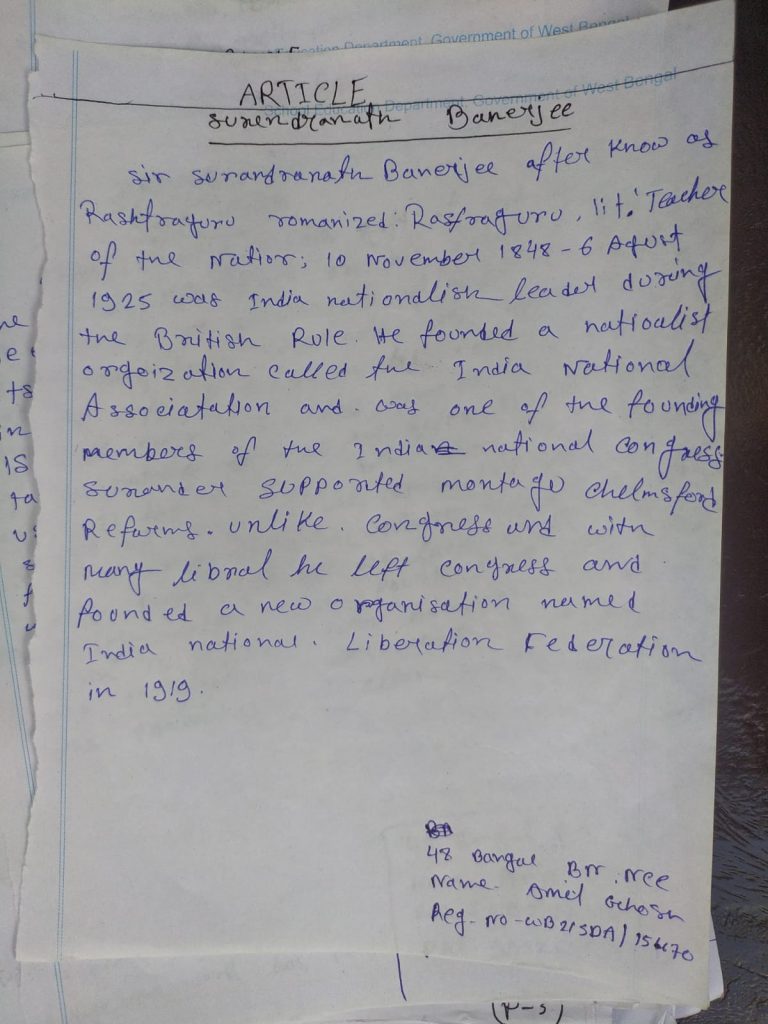 ation Department, Government of West Bengal
School Education Department, Government of West Bengal
ARTICLE
Surendranath Banerjee
Sir Surandranath Banerjee after Know as
Rashtraguru romanized: Rastraguru, lit. 'Teacher
of the Nation; 10 November 1848 - 6 Agust
1925 was India nationalish leader during
the British Rule. He founded a natioalist
orgoization called the India National
Associatation and. was one of the founding
members of the India national Congress
Surander supported montagu Chelmsford
Reforms. unlike. Congress and with
many libral he left congress and
founded a new organisation named
India national. Liberation Federation
in 1919.
48 Bangal Bn. Ncc
Name. Amil Ghosh
Reg. No - WB21SDA/
(P-5)